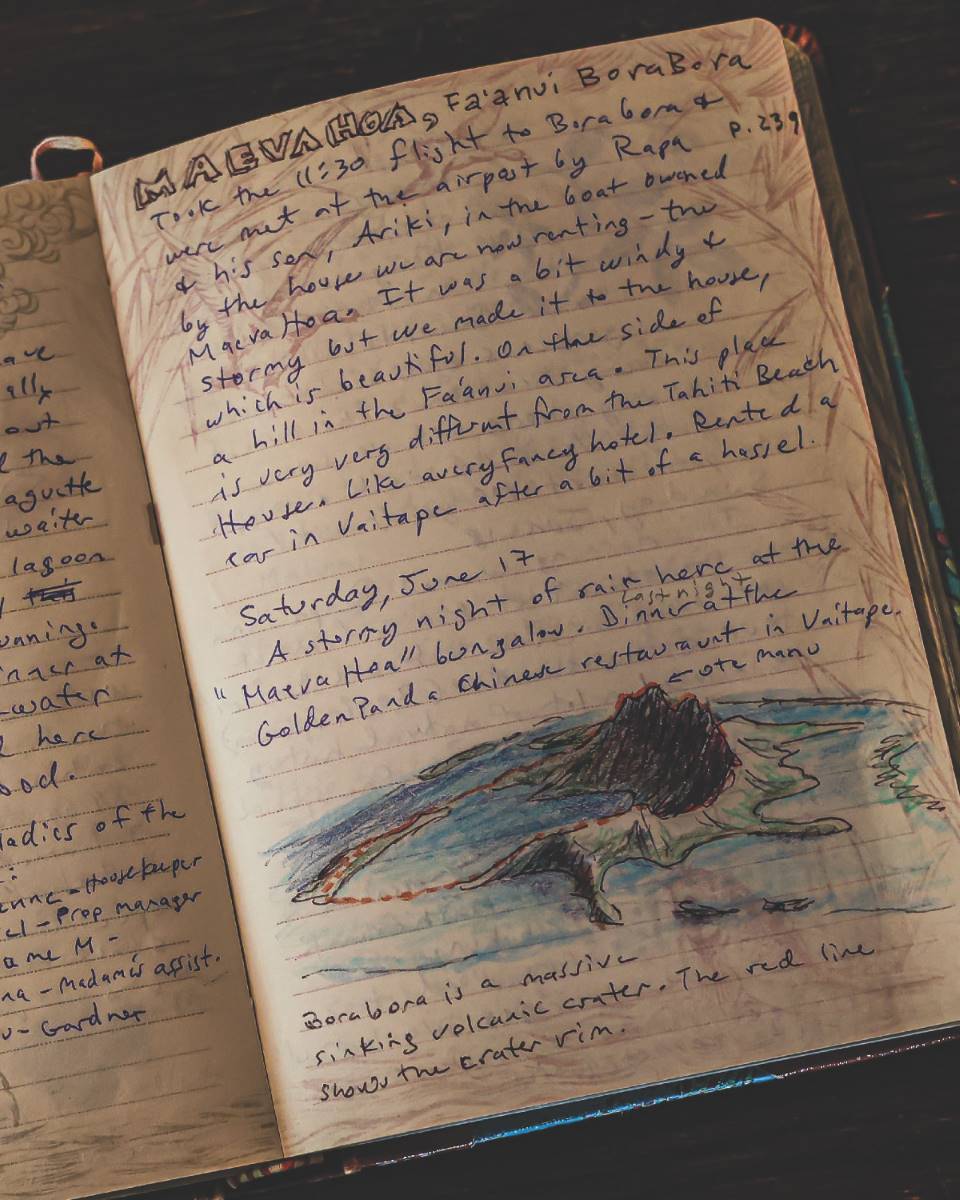 ave
ally
out
the
aguette
waiter
lagoon
unning.
inner at
-water
here
ood.
ladies of the
:
enne - Housekeeper
el - Prop manager
ame M -
na - Madame's assist.
u - Gardner
MAEVA HOA, Fa'anui BoraBora
p. 239
Took the 11:30 flight to Bora bora &
were met at the airport by Rapa
& his son, Ariki, in the boat owned
by the house we are now renting - the
Maeva Hoa. It was a bit windy &
stormy but we made it to the house,
which is beautiful. On the side of
a hill in the Fa'anui area. This place
is very very different from the Tahiti Beach
House. Like a very fancy hotel. Rented a
car in Vaitape after a bit of a hassel.
Saturday, June 17
A stormy night of rain here at the
"Maeva Hoa" bungalow. Dinner last night at the
Golden Panda Chinese restaurant in Vaitape.
← ote manu
Borabora is a massive
sinking volcanic crater. The red line
shows the crater rim.